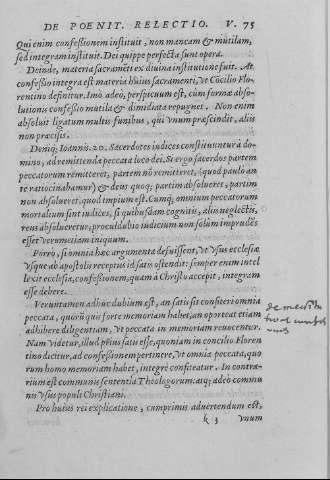 DE POENIT. RELECTIO. V. 75
Qui enim confeßionem instituit, non mancam & mutilam,
sed integram instituit. Dei quippe perfecta sunt opera.
Deinde, materia sacramẽti ex diuina institutione fuit. At
confeßio integra est materia huius sacramenti, vt Cõcilio Flo-
rentino definitur. Imò adeò, perspicuum est, cum forma abso-
lutionis confeßio mutila & dimidiata repugnet. Non enim
absoluit ligatum multis funibus, qui vnum præscindit, aliis
non præcisis.
Deniq; Ioannis. 20. Sacerdotes iudices constituuntur à do-
mino, ad remittenda peccata loco dei. Si ergo sacerdos partem
peccatorum remitteret, partem nõ remitteret, (quod paulò an
te ratiocinabamur) & deus quoq; partim absolueret, partim
non absolueret. quod impium est. Cumq; omnium peccatorum
mortalium sint iudices, si quibusdam cognitis, aliis neglectis,
reus absolueretur, proculdubio iudicium non solùm imprudẽs
esset verumetiam iniquum.
Porrò, si omnia hæc argumenta defuissent, vt vsus ecclesiæ
vsque ab apostolis receptus id satis ostendit: semper enim intel
lexit ecclesia, confeßionem, quam à Christo accepit, integram
esse debere.
Veruntamen adhuc dubium est, an satis sit confiteri omnia
peccata, quorũ quis forte memoriam habet, an oporteat etiam
adhibere diligentiam, vt peccata in memoriam reuocentur.
Nam videtur, illud prius satis esse, quoniam in concilio Floren
tino dicitur, ad confeßionem pertinere, vt omnia peccata, quo
rum homo memoriam habet, integrè confiteatur. In contra-
rium est communis sententia Theologorum: atq; adeò commu
nis vsus populi Christiani.
Pro huius rei explicatione, cumprimis aduertendum est,
k 3 vnum